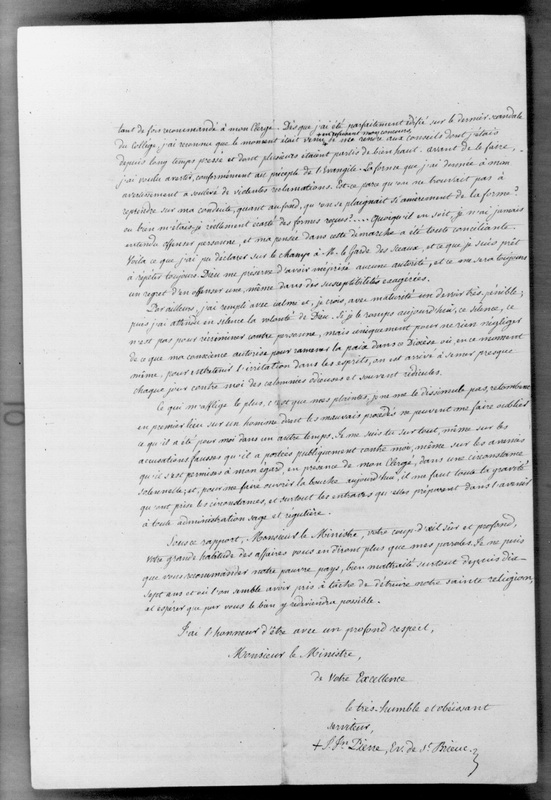 tant de fois recommandé à mon Clergé. Dès que j'ai été parfaitement édifié sur le dernier scandale
du Collège, j'ai reconnu que le moment était venu de me rendre aux conseils dont j'étais
depuis long temps pressé et dont plusieurs étaient partis de bien haut. Avant de le faire,
j'ai voulu avertir, conformément au précepte de l'Evangile. La forme que j'ai donnée à mon
avertissement a soulevé de violentes réclamations. Est-ce parce qu'on ne trouvait pas à
reprendre sur ma conduite, quant au fond, qu'on se plaignait si amèrement de la forme?
ou bien m'étais-je réellement écarté des formes reçues?.... Quoiqu'il en soit, je n'ai jamais
entendu offenser personne, et ma pensée dans cette démarche a été toute conciliante.
Voila ce que j'ai pu déclarer sur le champ à M. le Garde des Sceaux, et ce que je suis prêt
à répéter toujours. Dieu me préserve d'avoir méprisé aucune autorité, et ce me sera toujours
un regret d'en offenser une, même dans des susceptibilités exagérées.
Par ailleurs, j'ai rempli avec calme et, je crois, avec maturité un devoir très pénible;
puis j'ai attendu en silence la volonté de Dieu. Si je le romps aujourd'hui, ce silence, ce
n'est pas pour récriminer contre personne, mais uniquement pour ne rien négliger
de ce que ma conscience autorise pour ramener la paix dans ce Diocèse où en ce moment
même, pour entretenir l'irritation dans les esprits, on est arrivé à semer presque
chaque jour contre moi des calomnies odieuses et souvent ridicules.
Ce qui m'afflige le plus, c'est que mes plaintes, je ne me le dissimule pas, retombent
en premier lieu sur un homme dont les mauvais procédés ne peuvent me faire oublier
ce qu'il a été pour moi dans un autre temps. Je me suis tu sur tout, même sur les
accusations fausses qu'il a portées publiquement contre moi, même sur les avanies
qu'il s'est permises à mon égard, en présence de mon Clergé, dans une circonstance
solennelle; et, pour me faire ouvrir la bouche aujourd'hui, il me faut toute la gravité
qu'ont prise les circonstances, et surtout les entraves qu'elles préparent dans l'avenir
à toute administration sage et régulière.
Sous ce rapport, Monsieur le Ministre, votre coup d'œil sûr et profond,
votre grande habitude des affaires vous en diront plus que mes paroles. Je ne puis
que vous recommander notre pauvre pays, bien maltraité surtout depuis dix
sept ans et où l'on semble avoir pris à tâche de détruire notre sainte religion,
et espérer que par vous le bien y redeviendra possible.
J'ai l'honneur d'être avec un profond respect,
Monsieur le Ministre,
de Votre Excellence
le très humble et obéissant
serviteur,
+ J. Jn Pierre, Ev. de St Brieuc.